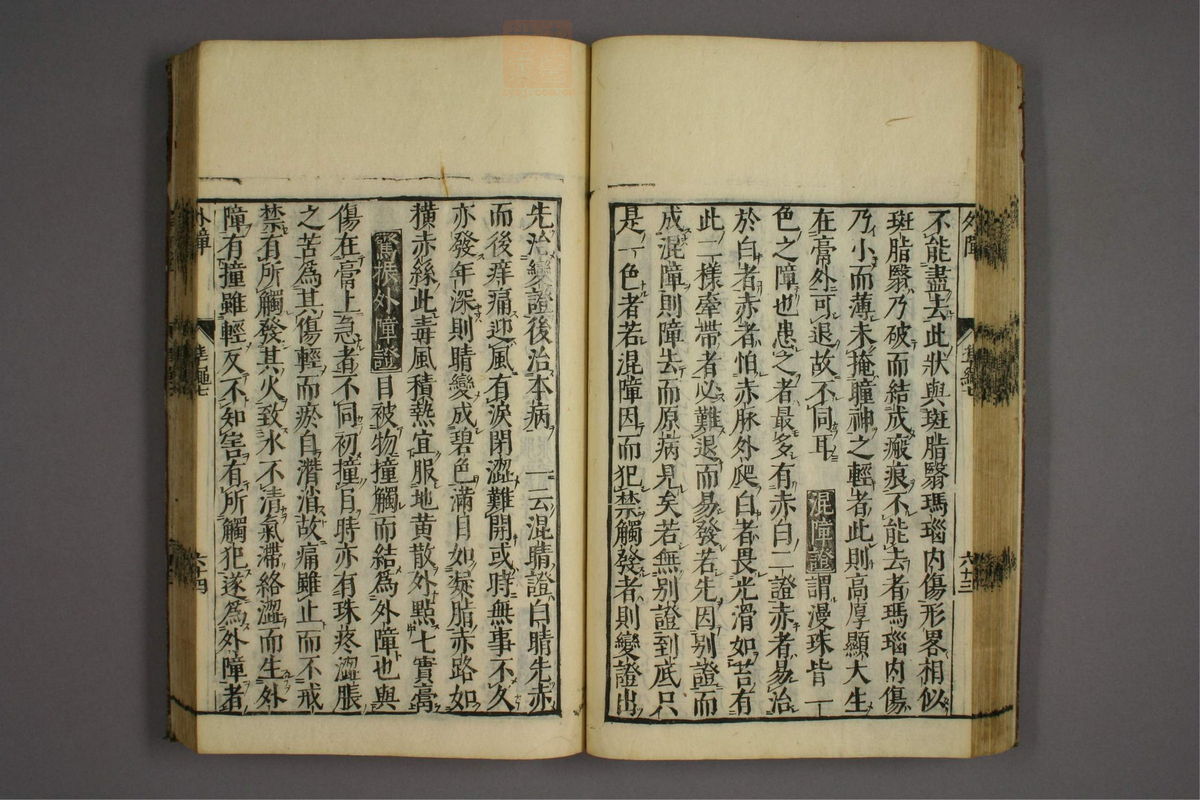 不能盡去此狀與斑脂翳瑪瑙内傷形畧相似
斑脂翳乃破而結成瘢痕不能去者瑪瑙内傷
乃小而薄未掩瞳神之輕者此則高厚顯大生
在膏外可退故不同耳 混障證 謂漫珠皆一
色之障也患之者最多有赤白二證赤者易治
於白者赤者怕赤脉外爬白者畏光滑如苔有
此二様牽帶者必難退而易發若先因别證而
成混障則障去而原病見矣若無别證到底只
是一色者若混障因而犯禁觸發者則變證出
先治變證後治本病 一云混睛證白睛先赤
而後痒痛迎風有淚閉澀難開或時無事不久
亦發年深則睛變成碧色滿目如凝脂赤路如
横赤絲此毒風積熱宜服地黄散外點七寶膏
驚振外障證 目被物撞觸而結為外障也與
傷在膏上急者不同初撞目時亦有珠疼澀脹
之苦為其傷輕而瘀自潛消故痛雖止而不戒
禁有所觸發其火致水不清氣滯絡澀而生外
障有撞雖輕反不知害有所觸犯遂為外障者
外障
六十三
外障
六十四